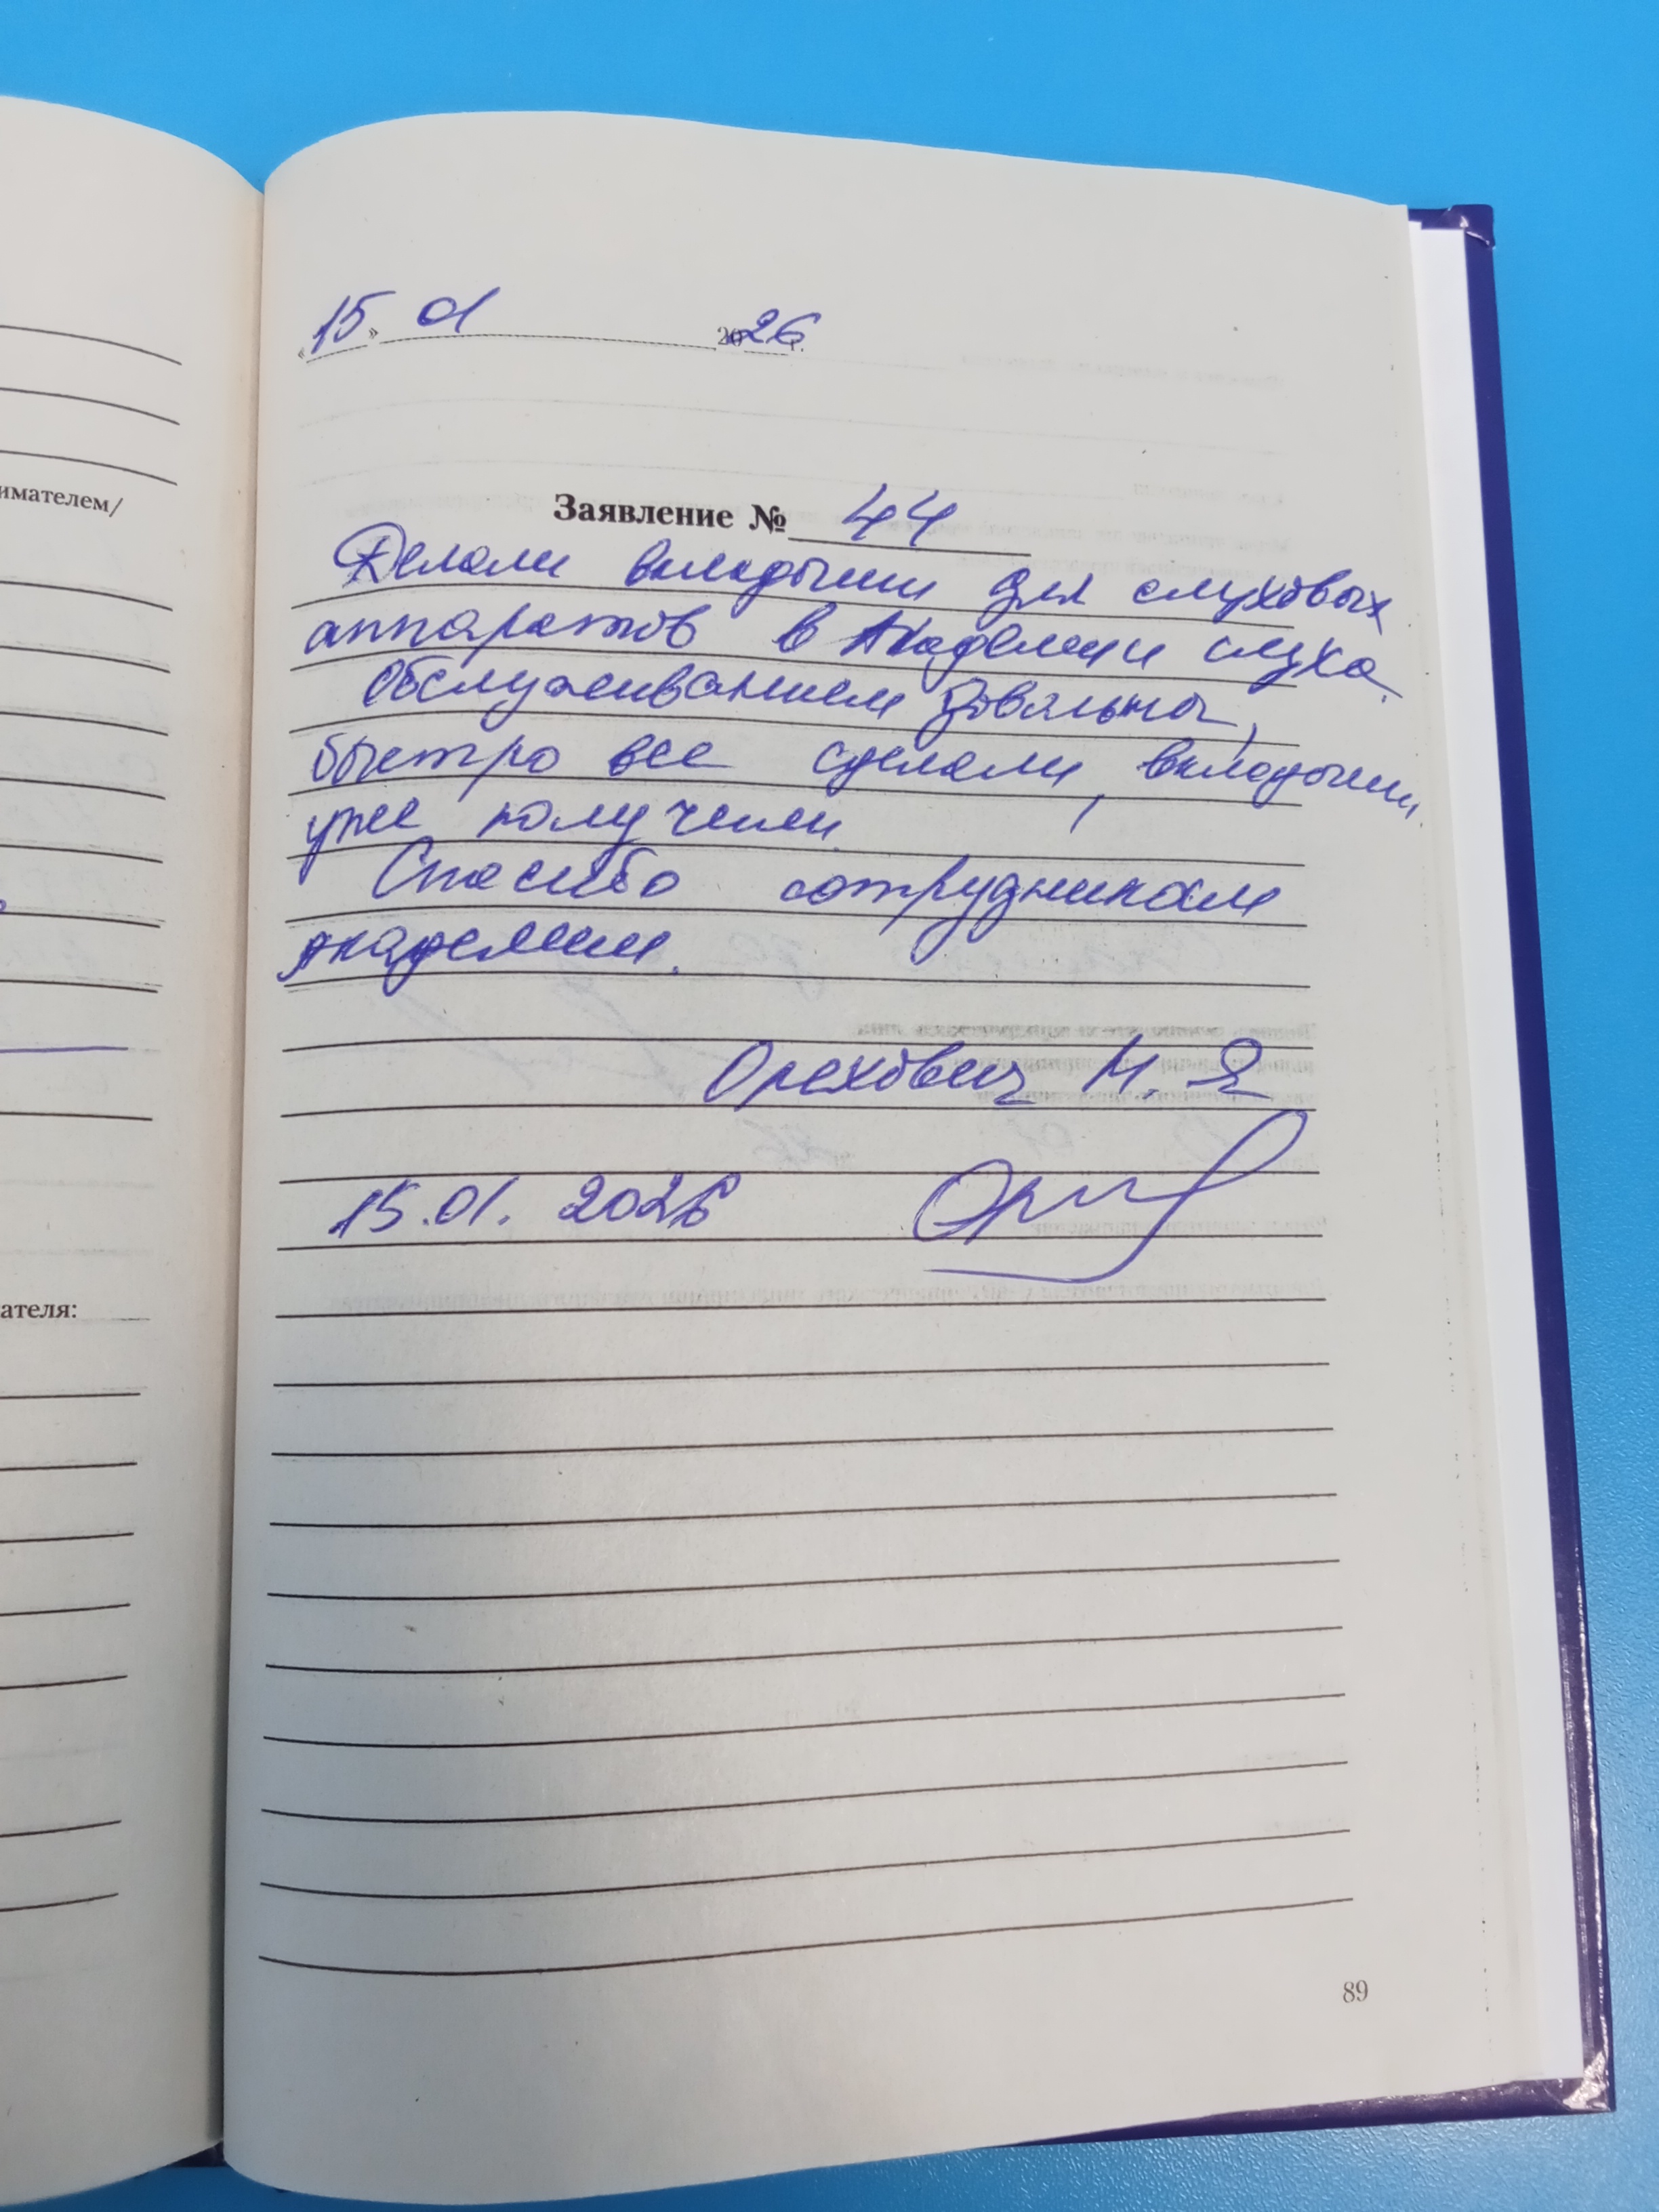 имателем/
ателя:
«15» 01 2026 г.
Заявление № 44
Делали вкладыши для слуховых
аппаратов в Академии слуха.
Обслуживанием довольна,
быстро все сделали, вкладыши
уже получили.
Спасибо сотрудникам
академии.
Орехович Н. Я
15.01.2026
89